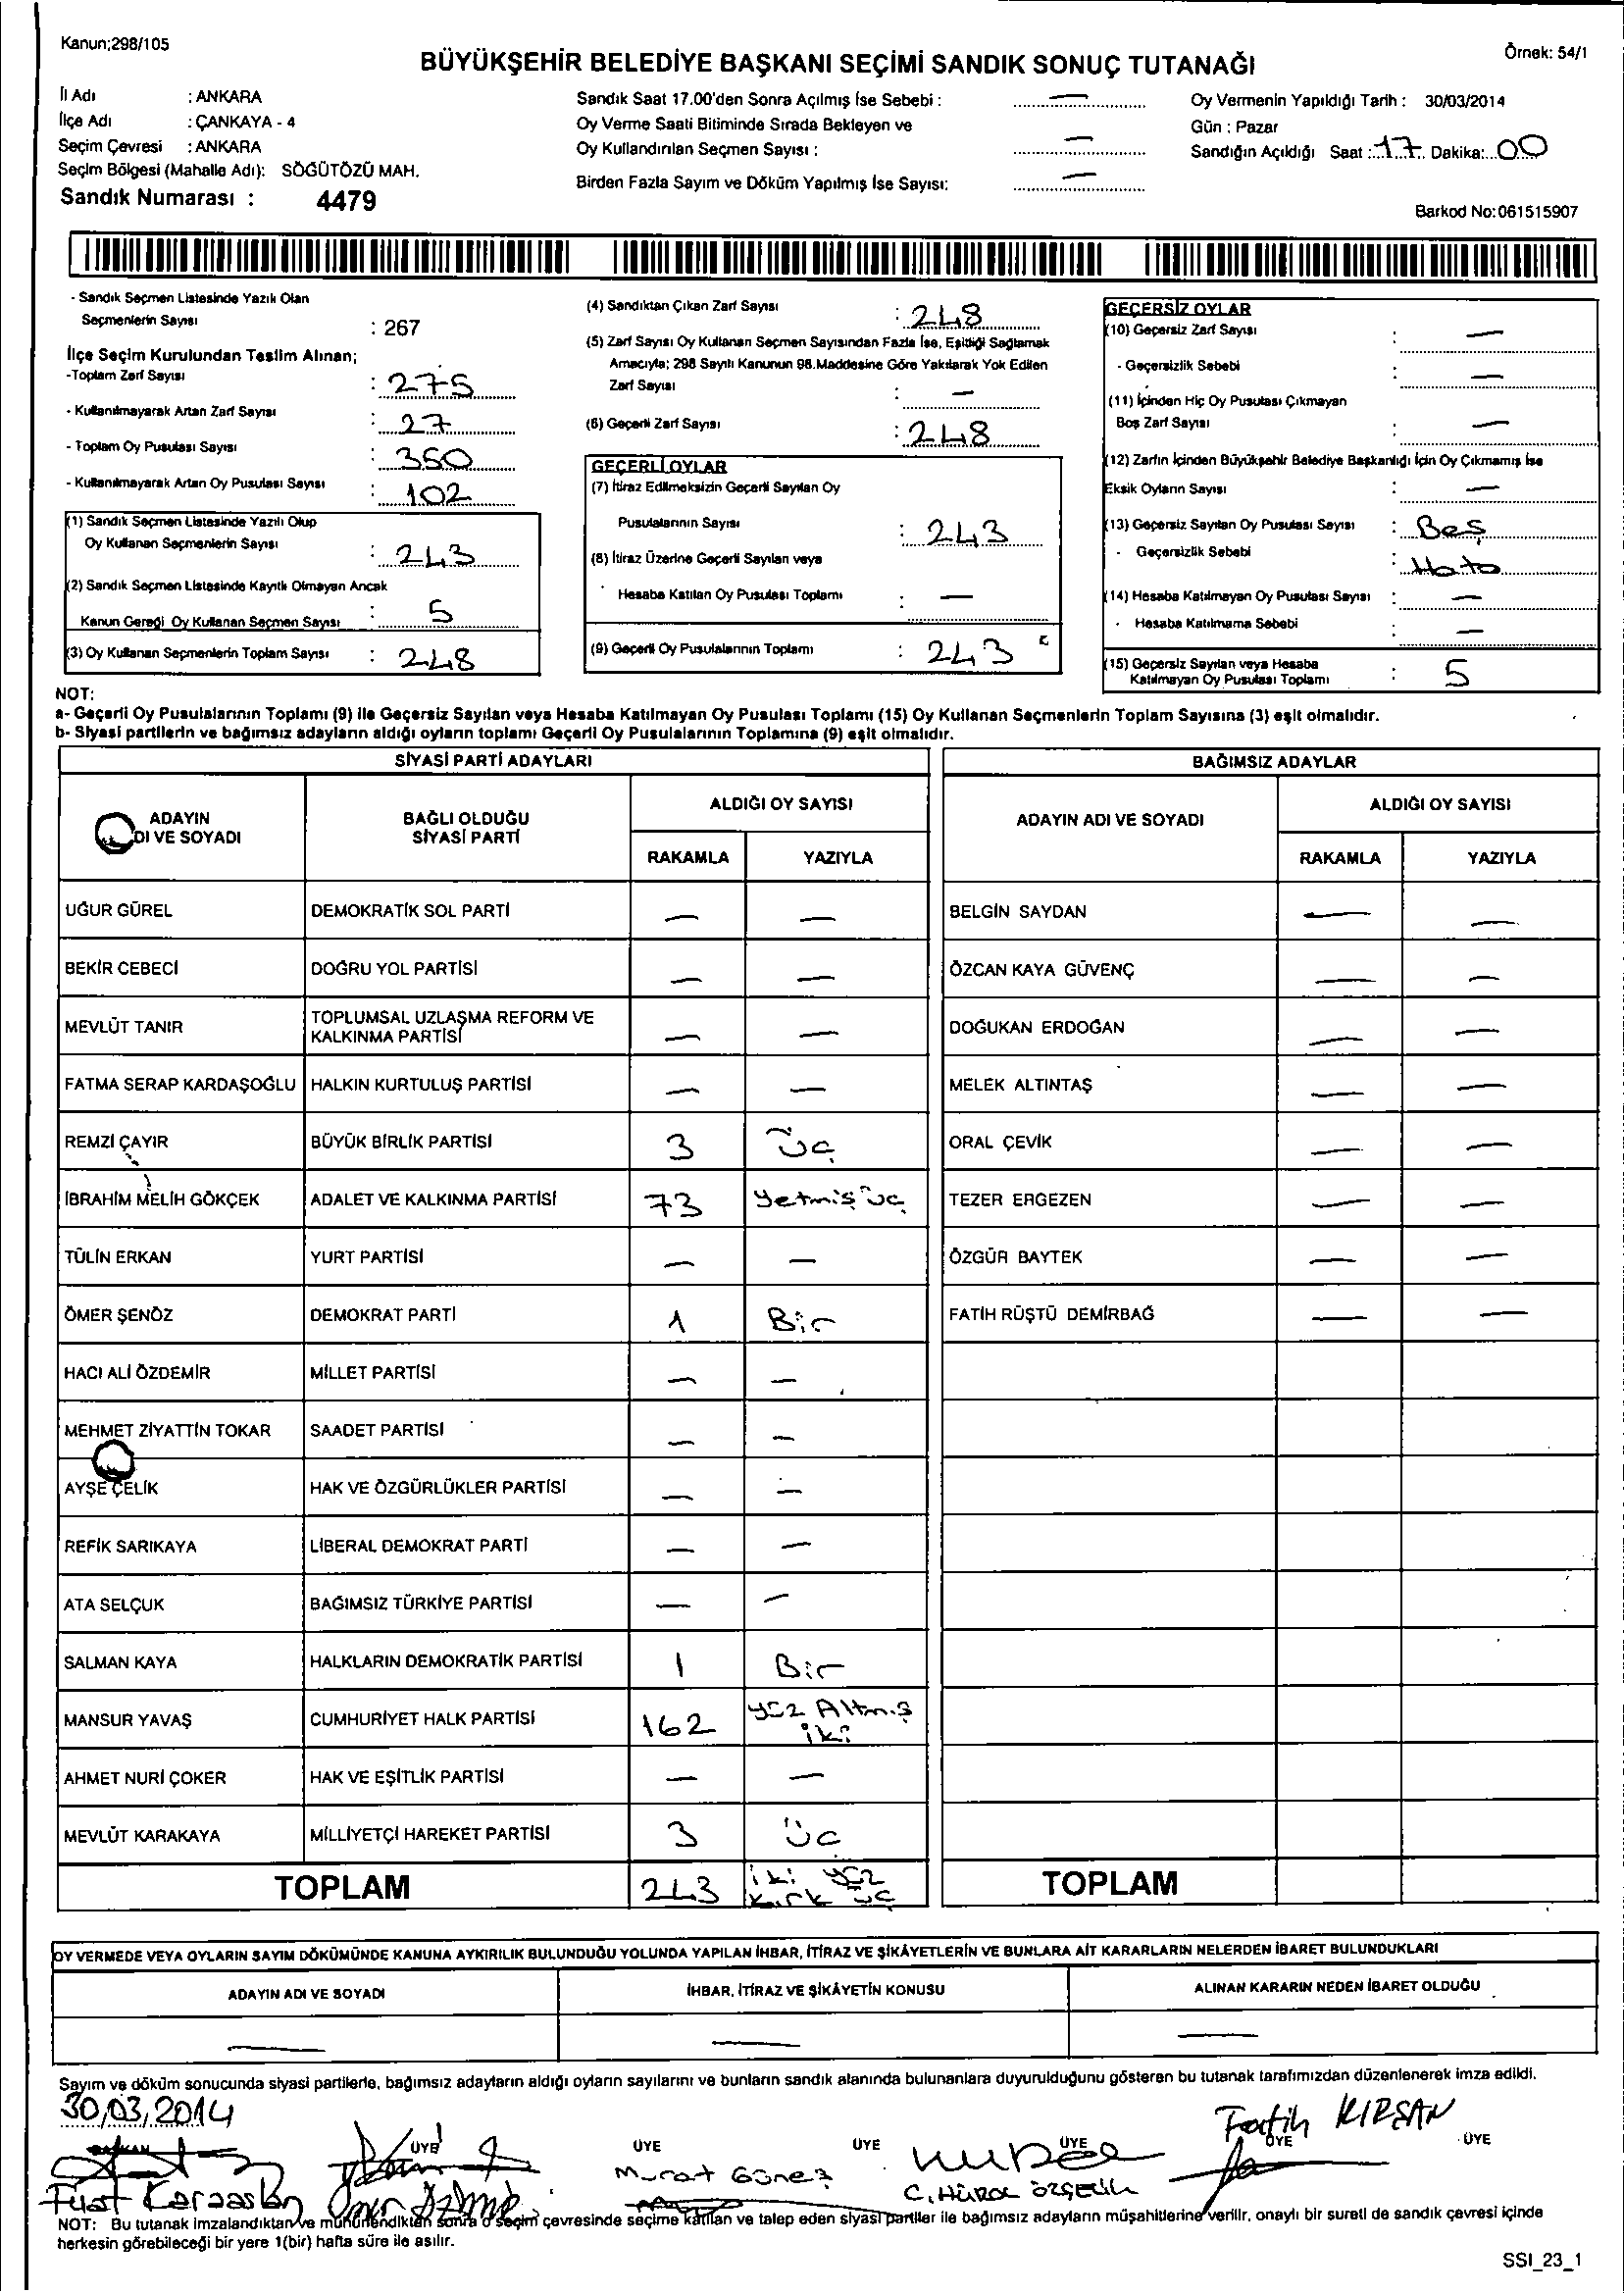 Kanun;298/105
BÜYÜKŞEHİR BELEDİYE BAŞKANI SEÇİMİ SANDIK SONUÇ TUTANAĞI
Örnek: 54/1
İl Adı : ANKARA
İlçe Adı : ÇANKAYA - 4
Seçim Çevresi : ANKARA
Seçim Bölgesi (Mahalle Adı): SÖĞÜTÖZÜ MAH.
Sandık Numarası : 4479
Sandık Saat 17.00'den Sonra Açılmış İse Sebebi : —
Oy Verme Saati Bitiminde Sırada Bekleyen ve
Oy Kullandırılan Seçmen Sayısı : —
Birden Fazla Sayım ve Döküm Yapılmış İse Sayısı: —
Oy Vermenin Yapıldığı Tarih : 30/03/2014
Gün : Pazar
Sandığın Açıldığı Saat : 17 Dakika: 00
Barkod No:061515907
- Sandık Seçmen Listesinde Yazılı Olan
Seçmenlerin Sayısı : 267
İlçe Seçim Kurulundan Teslim Alınan;
-Toplam Zarf Sayısı : 275
- Kullanılmayarak Artan Zarf Sayısı : 27
- Toplam Oy Pusulası Sayısı : 350
- Kullanılmayarak Artan Oy Pusulası Sayısı : 102
(1) Sandık Seçmen Listesinde Yazılı Olup
Oy Kullanan Seçmenlerin Sayısı : 243
(2) Sandık Seçmen Listesinde Kayıtlı Olmayan Ancak
Kanun Gereği Oy Kullanan Seçmen Sayısı : 5
(3) Oy Kullanan Seçmenlerin Toplam Sayısı : 248
(4) Sandıktan Çıkan Zarf Sayısı : 248
(5) Zarf Sayısı Oy Kullanan Seçmen Sayısından Fazla İse, Eşitliği Sağlamak
Amacıyla; 298 Sayılı Kanunun 98.Maddesine Göre Yakılarak Yok Edilen
Zarf Sayısı : —
(6) Geçerli Zarf Sayısı : 248
GEÇERLİ OYLAR
(7) İtiraz Edilmeksizin Geçerli Sayılan Oy
Pusulalarının Sayısı : 243
(8) İtiraz Üzerine Geçerli Sayılan veya
Hesaba Katılan Oy Pusulası Toplamı : —
(9) Geçerli Oy Pusulalarının Toplamı : 243
GEÇERSİZ OYLAR
(10) Geçersiz Zarf Sayısı : —
- Geçersizlik Sebebi : —
(11) İçinden Hiç Oy Pusulası Çıkmayan
Boş Zarf Sayısı : —
(12) Zarfın İçinden Büyükşehir Belediye Başkanlığı İçin Oy Çıkmamış İse
Eksik Oyların Sayısı : —
(13) Geçersiz Sayılan Oy Pusulası Sayısı : Beş
- Geçersizlik Sebebi : Hata
(14) Hesaba Katılmayan Oy Pusulası Sayısı : —
- Hesaba Katılmama Sebebi : —
(15) Geçersiz Sayılan veya Hesaba
Katılmayan Oy Pusulası Toplamı : 5
NOT:
a- Geçerli Oy Pusulalarının Toplamı (9) ile Geçersiz Sayılan veya Hesaba Katılmayan Oy Pusulası Toplamı (15) Oy Kullanan Seçmenlerin Toplam Sayısına (3) eşit olmalıdır.
b- Siyasi partilerin ve bağımsız adayların aldığı oyların toplamı Geçerli Oy Pusulalarının Toplamına (9) eşit olmalıdır.
SİYASİ PARTİ ADAYLARI
ADAYIN DI VE SOYADI
BAĞLI OLDUĞU SİYASİ PARTİ
ALDIĞI OY SAYISI
RAKAMLA YAZIYLA
UĞUR GÜREL DEMOKRATİK SOL PARTİ — —
BEKİR CEBECİ DOĞRU YOL PARTİSİ — —
MEVLÜT TANIR TOPLUMSAL UZLAŞMA REFORM VE KALKINMA PARTİSİ — —
FATMA SERAP KARDAŞOĞLU HALKIN KURTULUŞ PARTİSİ — —
REMZİ ÇAYIR BÜYÜK BİRLİK PARTİSİ 3 Üç
İBRAHİM MELİH GÖKÇEK ADALET VE KALKINMA PARTİSİ 73 Yetmiş üç
TÜLİN ERKAN YURT PARTİSİ — —
ÖMER ŞENÖZ DEMOKRAT PARTİ 1 Bir
HACI ALİ ÖZDEMİR MİLLET PARTİSİ — —
MEHMET ZİYATTİN TOKAR SAADET PARTİSİ — —
AYŞE ÇELİK HAK VE ÖZGÜRLÜKLER PARTİSİ — —
REFİK SARIKAYA LİBERAL DEMOKRAT PARTİ — —
ATA SELÇUK BAĞIMSIZ TÜRKİYE PARTİSİ — —
SALMAN KAYA HALKLARIN DEMOKRATİK PARTİSİ 1 Bir
MANSUR YAVAŞ CUMHURİYET HALK PARTİSİ 162 Yüz Altmış iki
AHMET NURİ ÇOKER HAK VE EŞİTLİK PARTİSİ — —
MEVLÜT KARAKAYA MİLLİYETÇİ HAREKET PARTİSİ 3 Üç
TOPLAM 243 iki yüz kırk üç
BAĞIMSIZ ADAYLAR
ADAYIN ADI VE SOYADI
ALDIĞI OY SAYISI
RAKAMLA YAZIYLA
BELGİN SAYDAN — —
ÖZCAN KAYA GÜVENÇ — —
DOĞUKAN ERDOĞAN — —
MELEK ALTINTAŞ — —
ORAL ÇEVİK — —
TEZER ERGEZEN — —
ÖZGÜR BAYTEK — —
FATİH RÜŞTÜ DEMİRBAĞ — —
TOPLAM
OY VERMEDE VEYA OYLARIN SAYIM DÖKÜMÜNDE KANUNA AYKIRILIK BULUNDUĞU YOLUNDA YAPILAN İHBAR, İTİRAZ VE ŞİKÂYETLERİN VE BUNLARA AİT KARARLARIN NELERDEN İBARET BULUNDUKLARI
ADAYIN ADI VE SOYADI İHBAR, İTİRAZ VE ŞİKÂYETİN KONUSU ALINAN KARARIN NEDEN İBARET OLDUĞU
— — —
Sayım ve döküm sonucunda siyasi partilerle, bağımsız adayların aldığı oyların sayılarını ve bunların sandık alanında bulunanlara duyurulduğunu gösteren bu tutanak tarafımızdan düzenlenerek imza edildi.
30,03,2014
BAŞKAN ÜYE ÜYE ÜYE ÜYE ÜYE ÜYE
Fatih KIRSAN
Murat Güneş
Fuat Karaaslan
C. HÜROL ÖZÇELİK
NOT: Bu tutanak imzalandıktan ve mühürlendikten sonra o seçim çevresinde seçime katılan ve talep eden siyasi partiler ile bağımsız adayların müşahitlerine verilir, onaylı bir sureti de sandık çevresi içinde
herkesin görebileceği bir yere 1(bir) hafta süre ile asılır.
SSI_23_1